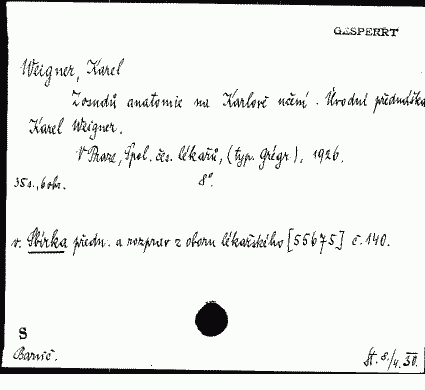 GESPERRT
Weigner, Karel
Z osudů anatomie na Karlově učení. Úvodní přednáška
Karel Weigner.
V Praze, Spol. čes. lékařů, (typ. Grégr), 1926.
35 s., 6 obr. 8°.
v. Sbírka předn. a rozprav z oboru lékařského [55675] č. 140.
S
St. 8./4. 30.